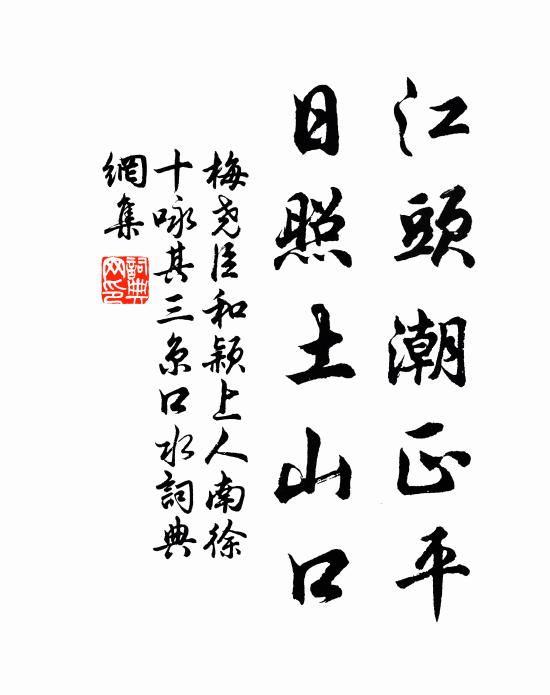 江頭潮正平
日照土山口
梅堯臣和穎上人南徐
十咏其三京口水詞典
網集
詞典網印